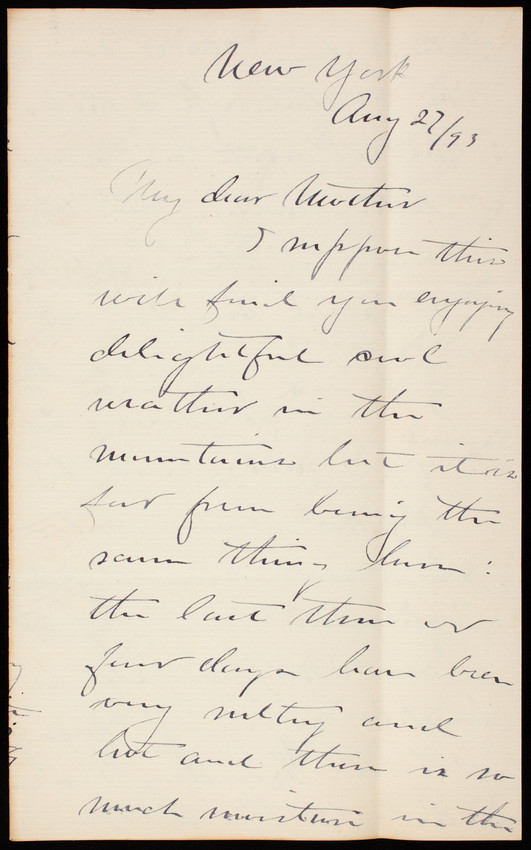 New York
Aug 27/93
My dear Mother
I suppose this
will find you enjoying
delightful cool
weather in the
mountains but it is
far from being the
same thing here:
the last three or
four days have been
very sultry and
hot and there is so
much moisture in the